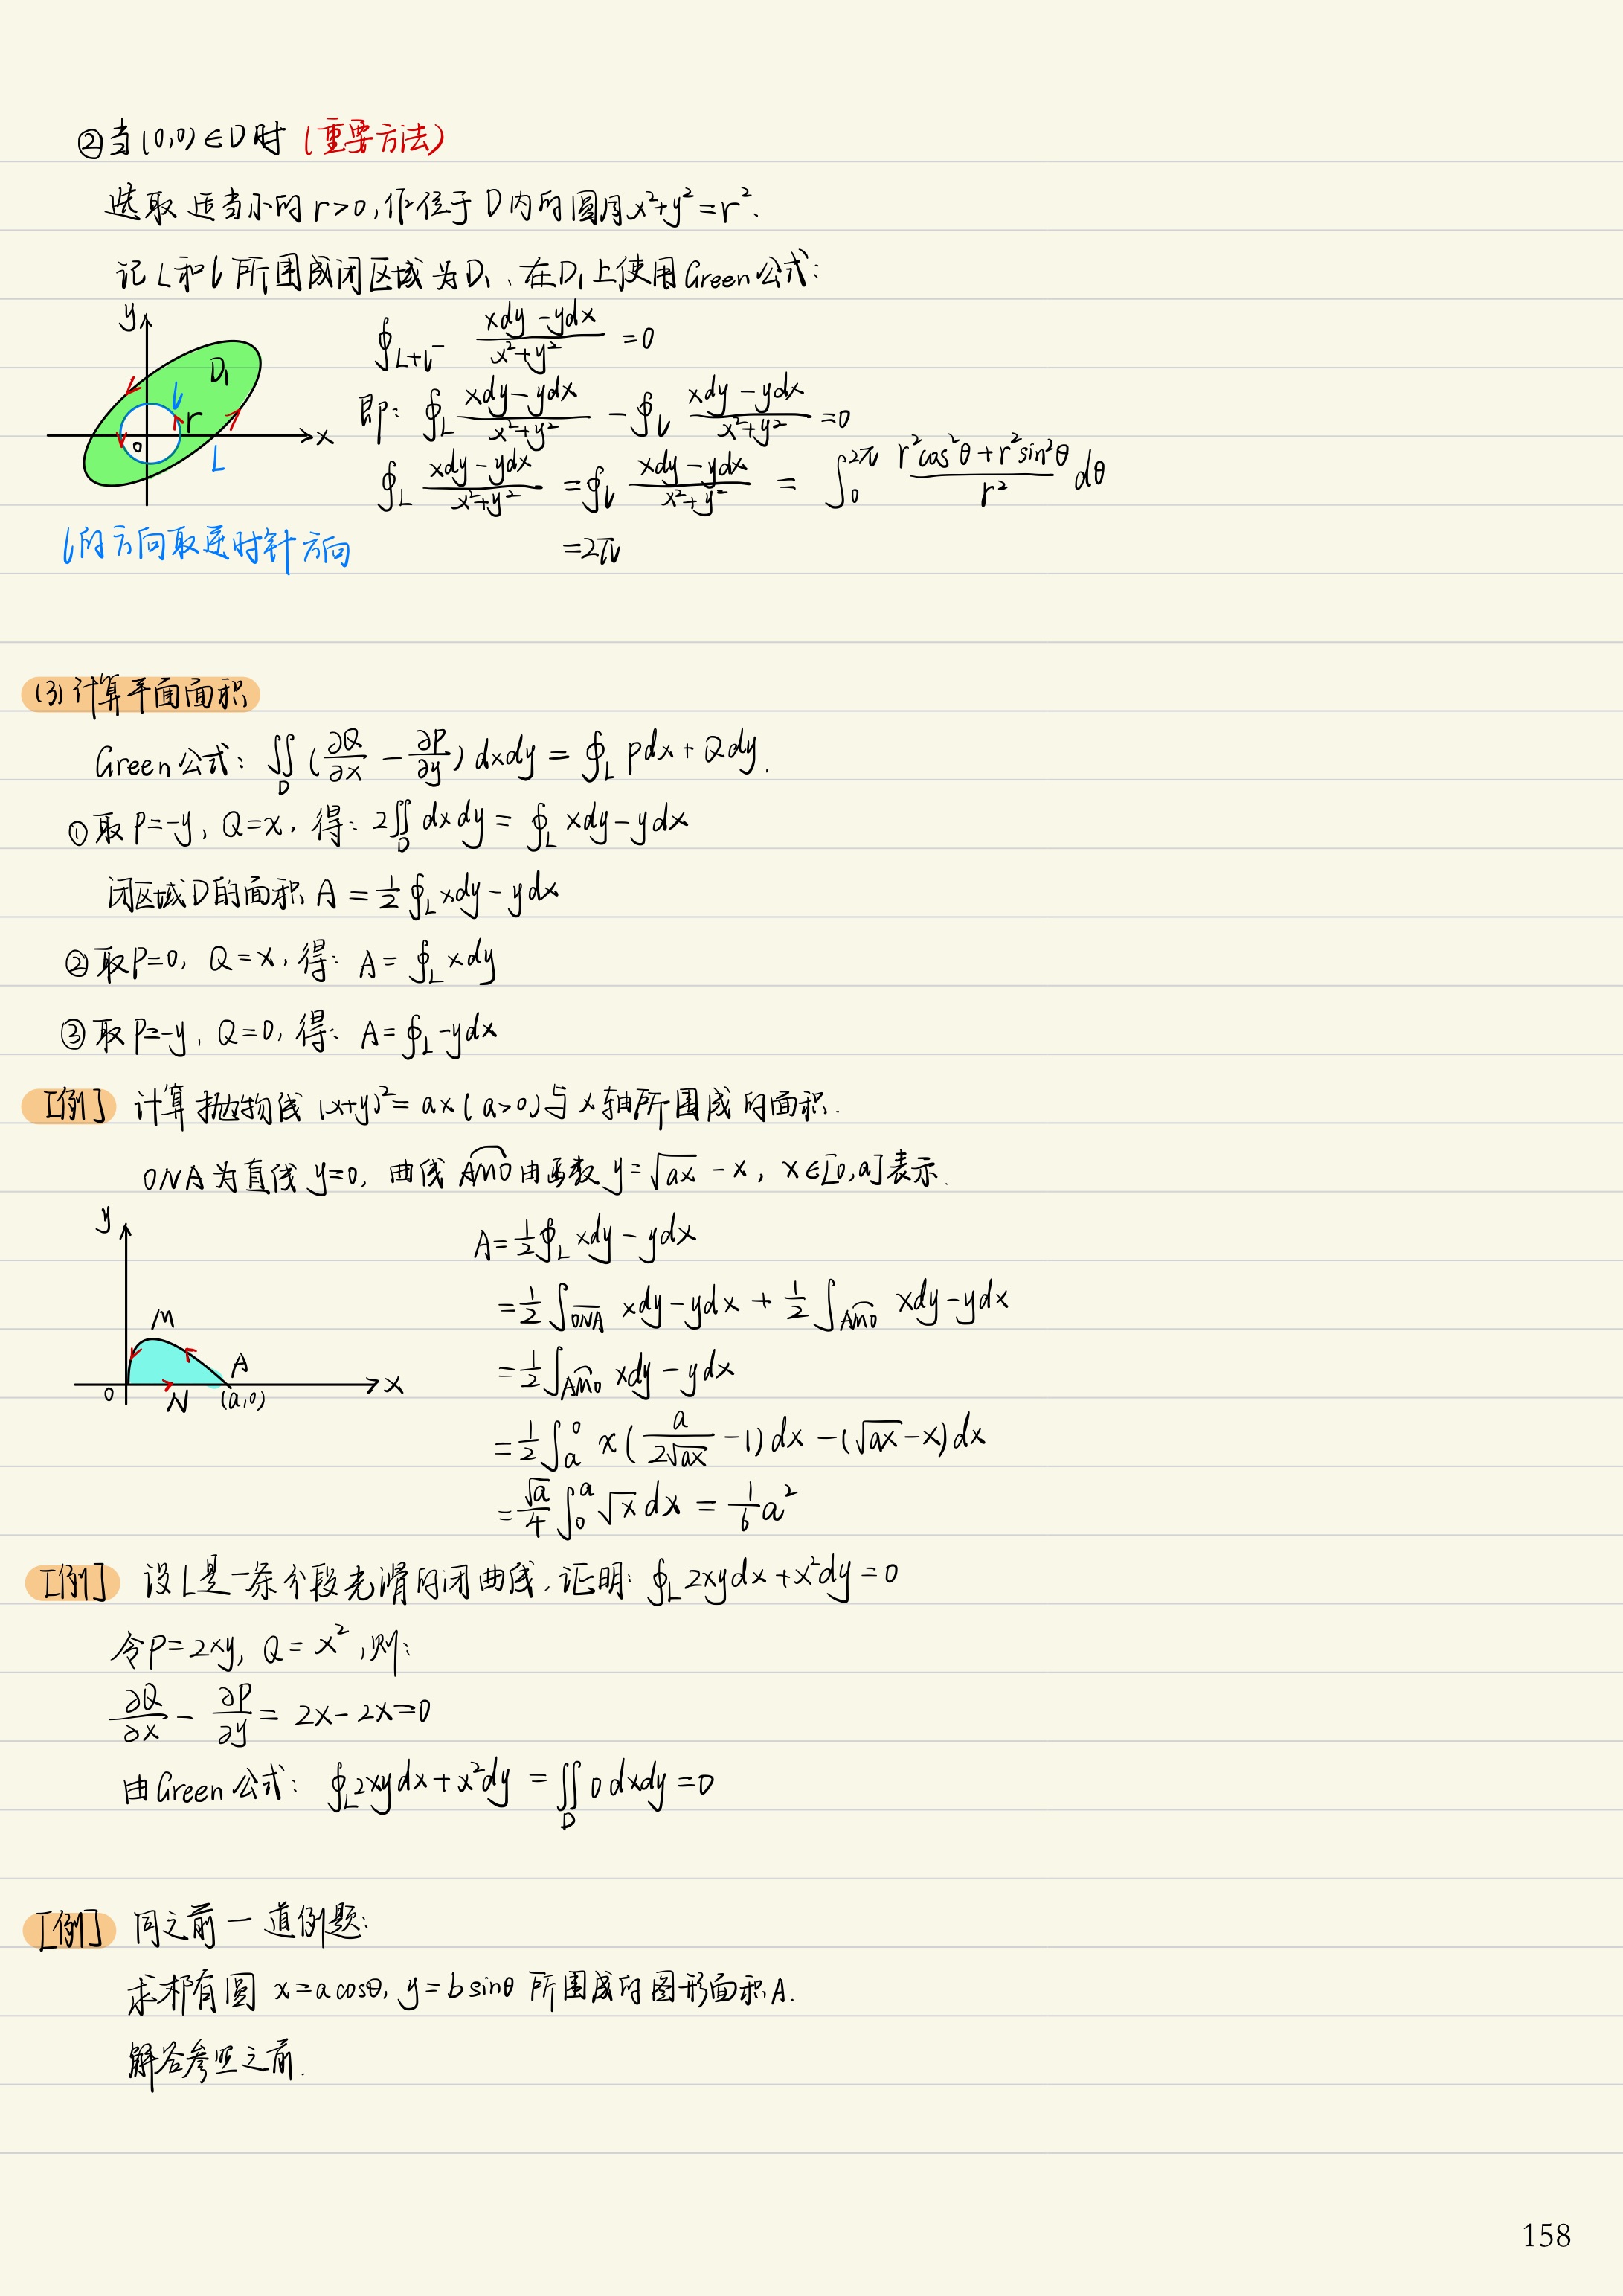 ②当(0,0)∈D时 (重要方法)
选取适当小的r>0,作位于D内的圆周x²+y²=r².
记L和l所围成闭区域为D₁、在D₁上使用Green公式:
y
x
0
D₁
l
r
L
l的方向取逆时针方向
∮_{L+l⁻} (xdy-ydx)/(x²+y²) =0
即: ∮_L (xdy-ydx)/(x²+y²) - ∮_l (xdy-ydx)/(x²+y²) =0
∮_L (xdy-ydx)/(x²+y²) = ∮_l (xdy-ydx)/(x²+y²) = ∫₀^{2π} (r²cos²θ+r²sin²θ)/r² dθ
=2π
(3)计算平面面积
Green公式: ∬_D (∂Q/∂x - ∂P/∂y) dxdy = ∮_L Pdx+Qdy.
①取P=-y, Q=x, 得: 2∬_D dxdy = ∮_L xdy-ydx
闭区域D的面积A = 1/2 ∮_L xdy-ydx
②取P=0, Q=x, 得: A=∮_L xdy
③取P=-y, Q=0, 得: A=∮_L -ydx
[例] 计算抛物线(x+y)²=ax(a>0)与x轴所围成的面积.
ONA为直线y=0, 曲线AMO由函数y=√(ax)-x, x∈[0,a]表示.
y
M
A
0
N
(a,0)
x
A=1/2 ∮_L xdy-ydx
=1/2 ∫_{ONA} xdy-ydx + 1/2 ∫_{AMO} xdy-ydx
=1/2 ∫_{AMO} xdy-ydx
=1/2 ∫_a^0 x(a/(2√(ax)) -1)dx-(√(ax)-x)dx
=√a/4 ∫_0^a √x dx = 1/6 a²
[例] 设L是一条分段光滑的闭曲线,证明: ∮_L 2xydx+x²dy=0
令P=2xy, Q=x²,则:
∂Q/∂x - ∂P/∂y = 2x-2x=0
由Green公式: ∮_L 2xydx+x²dy = ∬_D 0dxdy=0
[例] 同之前一道例题:
求椭圆 x=acosθ, y=bsinθ 所围成的图形面积A.
解答参照之前.
158